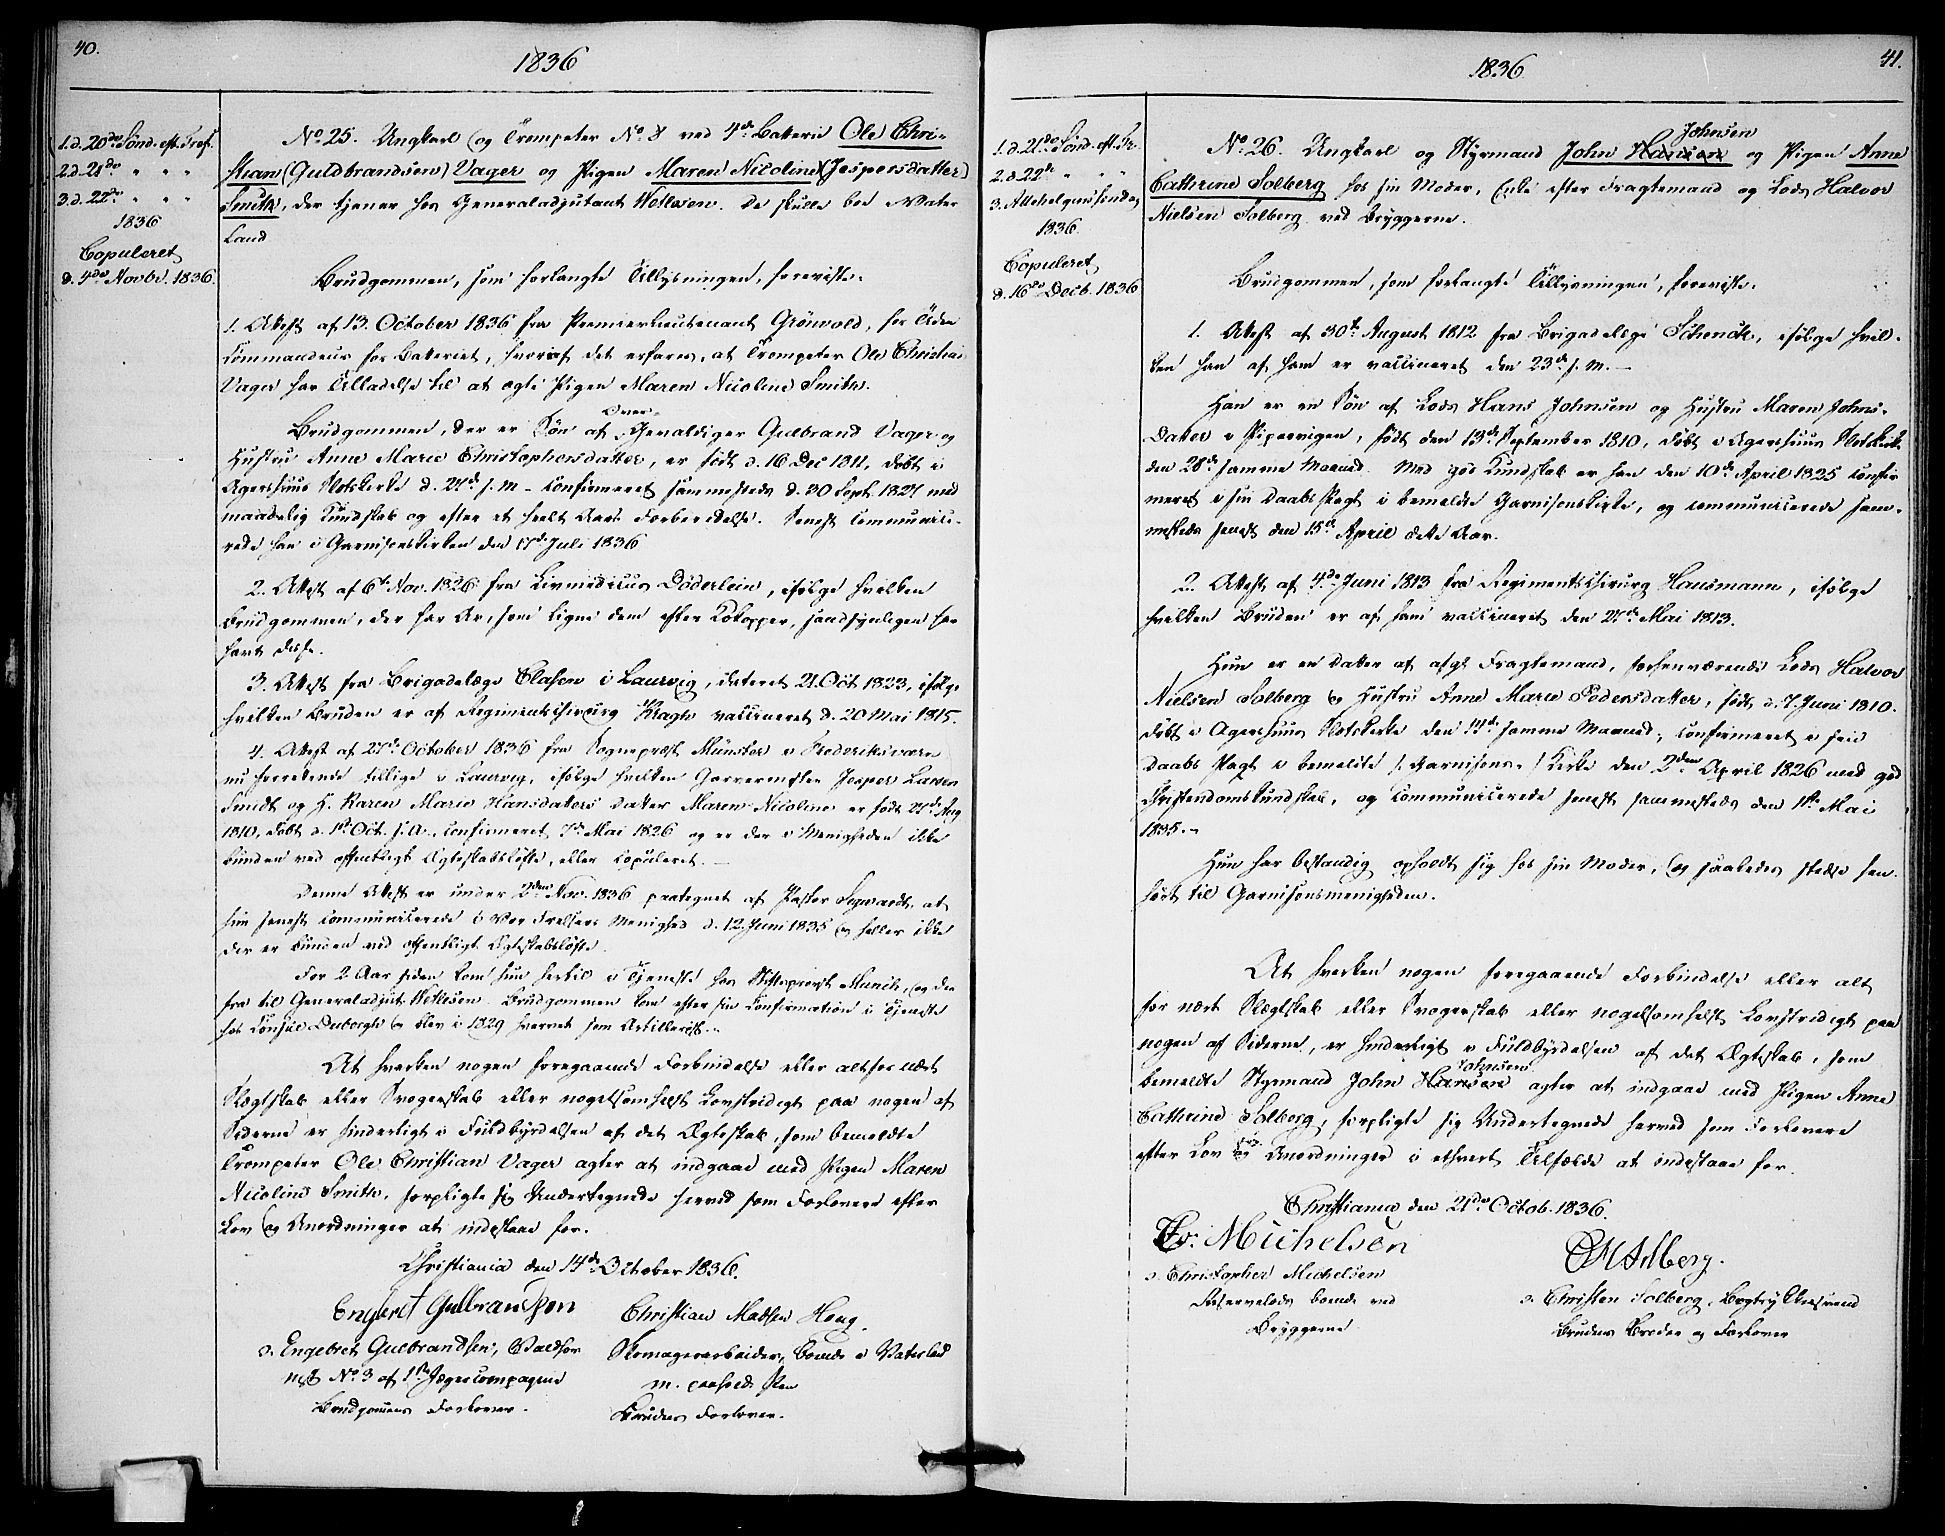 40.
1836
1. d. 20de Sønd. eft. Tref.
2. d. 21de " " "
3. d. 22de " " "
1836
Copuleret
d. 4de Novbr. 1836.
No 25. Ungkarl og Trompeter No 8 ved 4de Batterie Ole Chri-
stian (Guldbrandsen) Vager og Pigen Maren Nicoline (Jespersdatter)
Smith, der tjener hos Generaladjutant Wetlesen. De skulle boe i Vater
Land
Brudgommen, som forlangte Tillysningen, foreviste:
1. Attest af 13. October 1836 fra Premierlieutenant Grönvold, for Tiden
Commandeur for Batteriet, hvoraf det erfares, at Trompeter Ole Christian
Vager har Tilladelse til at ægte Pigen Maren Nicoline Smith.
Brudgommen, der er Søn af Over-Gevaldiger Gulbrand Vager og
Hustru Anne Marie Christophersdatter, er født d. 16 Dec 1811, døbt i
Agershuus Slotskirke d. 27de s. M. – confirmeret sammesteds d. 30 Sept. 1827 med
maadelig Kundskab og efter et heelt Aars Forberedelse. Senest communice-
rede han i Garnisonskirken den 17de Juli 1836
2. Attest af 6te Nov. 1826 fra Livmedicus Döderlein, ifølge hvilken
Brudgommen, der har Ar, som ligne dem efter Kokopper, sandsynligen har
havt disse.
3. Attest fra Brigadelæge Clasen i Laurvig, dateret 21. Oct 1833, ifølge
hvilken Bruden er af Regimentschirurg Kragh vaccineret d. 20 Mai 1815.
4. Attest af 27de October 1836 fra Sognepræst Münster i Frederiksværn
nu forrettende tillige i Laurvig, ifølge hvilken Garvermester Jesper Larsen
Smidt og H. Karen Marie Hansdatters Datter Maren Nicoline er født 21de Aug
1810, døbt d. 1ste Oct. s. A., confirmeret 7de Mai 1826 og er der i Menigheden ikke
bunden ved offentligt Ægteskabsløfte, eller copuleret. –
Denne Attest er under 2den Nov. 1836 paategnet af Pastor Segwardt, at
hun senest communicerede i Vor Frelsers Menighed d. 12. Juni 1835 og heller ikke
der er bunden ved offentligt Ægteskabsløfte.
For 2 Aar siden kom hun hertil i Tjeneste hos Stiftsprovst Munch, og der
fra til Generaladjut. Wetlesen. Brudgommen kom efter sin Confirmation i Tjeneste
hos Consul Duborgh og blev i 1829 hvervet som Artillerist. –
At hverken nogen foregaaende Forbindelse eller altfor nært
Slægtskab eller Svogerskab eller nogetsomhelst Lovstridigt paa nogen af
Siderne er hinderligt i Fuldbyrdelsen af det Ægteskab, som bemeldte
Trompeter Ole Christian Vager agter at indgaae med Pigen Maren
Nicoline Smith, forpligte sig Undertegnede herved som Forlovere efter
Lov og Anordninger at indestaae for.
Christiania den 14de October 1836.
Engbret Gulbrandsen
Christian Madsen Houg.
o: Engebret Gulbrandsen, Valdhor-
nist No 3 af 1ste Jægercompagnie
Brudgommens Forlover.
Skomagerarbeider, boende i Vaterland
m. paaholden Pen
Brudens Forlover.
1836
41.
1. d. 21de Sønd. eft. Tr.
2. d. 22de " "
3. Allehelgens søndag
1836.
Copuleret
d. 16de Decb. 1836
Johnsen
No 26. Ungkarl og Styrmand John Hansen og Pigen Anne
Cathrine Solberg hos sin Moder, Enke efter Fragtemand og Lods Halvor
Nielsen Solberg ved Bryggerne.
Brudgommen, som forlangte Tillysningen, foreviste:
1. Attest af 30te August 1812 fra Brigadelæge Schenck, ifølge hvil-
ken han af ham er vaccineret den 23de s. M. –
Han er en Søn af Lods Hans Johnsen og Hustru Maren Johns-
Datter i Pipervigen, født den 13de September 1810, døbt i Agershuus Slotskirke
den 28de samme Maaned. Med god Kundskab er han den 10de April 1825 confir-
meret i sin Daabs Pagt i bemeldte Garnisonskirke, og communicerede sam-
mesteds senest den 15de April dette Aar.
2. Attest af 4de Juni 1813 fra Regimentschirurg Hausmann, ifølge
hvilken Bruden er af ham vaccineret den 27de Mai 1813.
Hun er en Datter af afg. Fragtemand, forhenværende Lods Halvor
Nielsen Solberg og Hustru Anne Marie Pedersdatter, født d. 7. Juni 1810.
døbt i Agershuus Slotskirke den 14de samme Maaned, confirmeret i sin
Daabs Pagt i bemeldte /: Garnisons- :/ Kirke den 2den April 1826 med god
Christendomskundskab, og communicerede senest sammesteds den 1ste Mai
1835. –
Hun har bestandig opholdt sig hos sin Moder, og saaledes stedse hen-
hört til Garnisonsmenigheden.
At hverken nogen foregaaende Forbindelse eller alt
for nært Slægtskab eller Svogerskab eller nogetsomhelst Lovstridigt paa
nogen af Siderne, er hinderligt i Fuldbyrdelsen af det Ægteskab, som
Johnsen
bemeldte Styrmand John Hansen agter at indgaae med Pigen Anne
Cathrine Solberg, forpligte sig Undertegnede herved som Forlovere
efter Lov og Anordninger i ethvert Tilfælde at indestaae for.
Christiania den 21de Octob. 1836.
Chr. Michelsen
o: Christopher Michelsen
Reservelods boende ved
Bryggerne
o: Christen Solberg, Bogtrykkersvend
Brudens Broder og Forlover